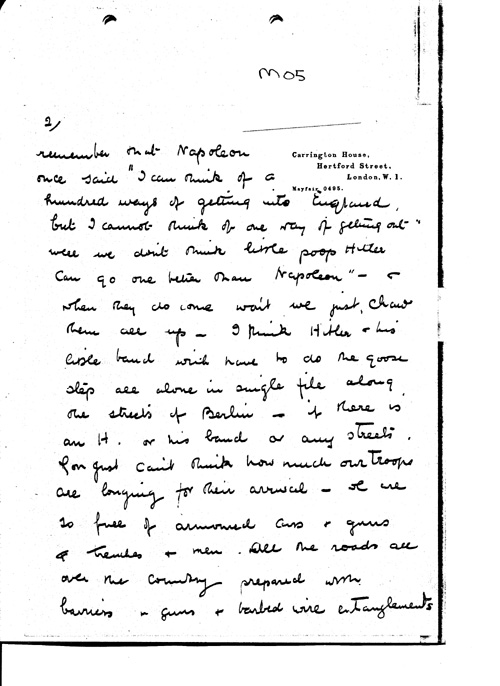 M05
2/
Carrington House,
Hertford Street,
London, W. 1.
Mayfair 0495.
remember that Napoleon
once said "I can think of a
hundred ways of getting into England,
but I cannot think of one way of getting out"
well we don't think little poop Hitler
can go one better than Napoleon" - &
when they do come won't we just chaw
them all up - I think Hitler & his
little band will have to do the goose
step all alone in single file along
the streets of Berlin - if there is
an H. or his band or any streets.
You just can't think how much our Troops
are longing for their arrival - we are
so full of armoured cars & guns
& trenches & men. All the roads all
over the country prepared with
barriers & guns & barbed wire entanglements